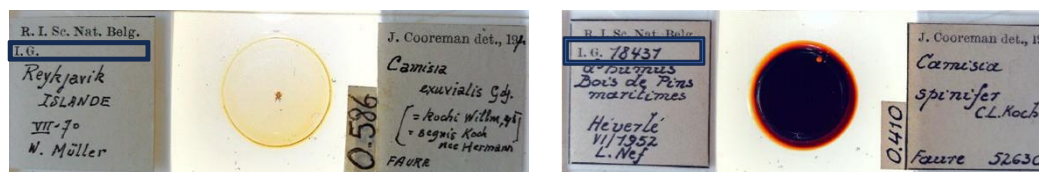 R. I. Sc. Nat. Belg.
I. G.
Reykjavik
ISLANDE
VII-70
W. Müller
0.586
J. Cooreman det., 19
Camisia
exuvialis Gdj.
[= Kochi Willm,
= segnis Koch
nec Hermann]
FAURE
R. I. Sc. Nat. Belg.
I. G. 18437
d'humus
Bois de Pins
maritimes
Héverlé
VI/1952
L. Nef
0.410
J. Cooreman det., 1
Camisia
spinifer
C.L. Koch
Faure 52630